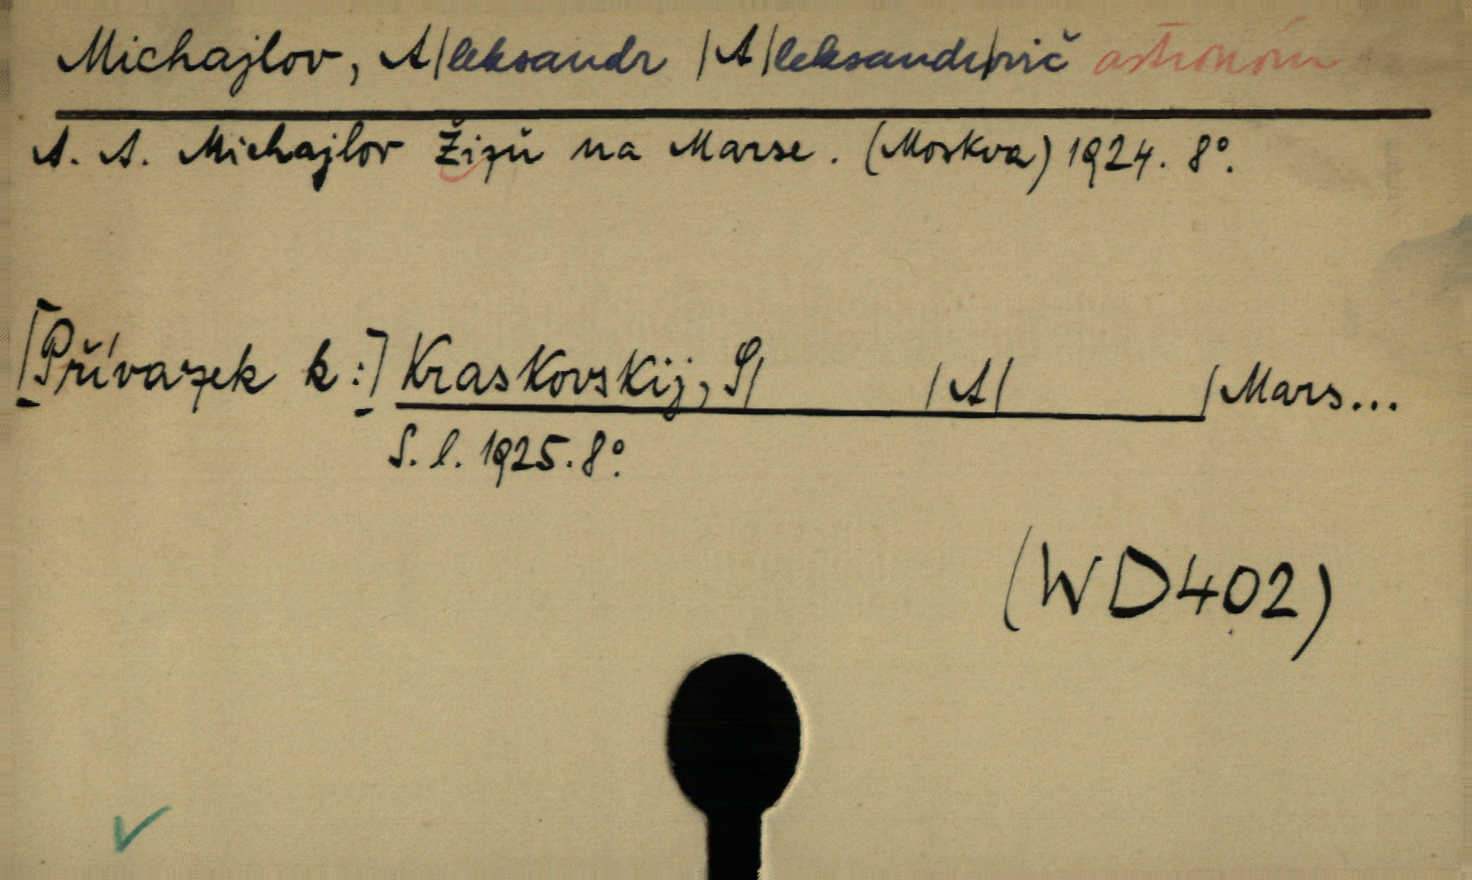 Michajlov, A|leksandr |A|leksandrovič astronóm
A. A. Michajlov na Marse. (Moskva) 1924. 8°.
[Přívazek k:] Kraskovskij, S| |A| |Mars...
S. l. 1925. 8°.
(WD402)